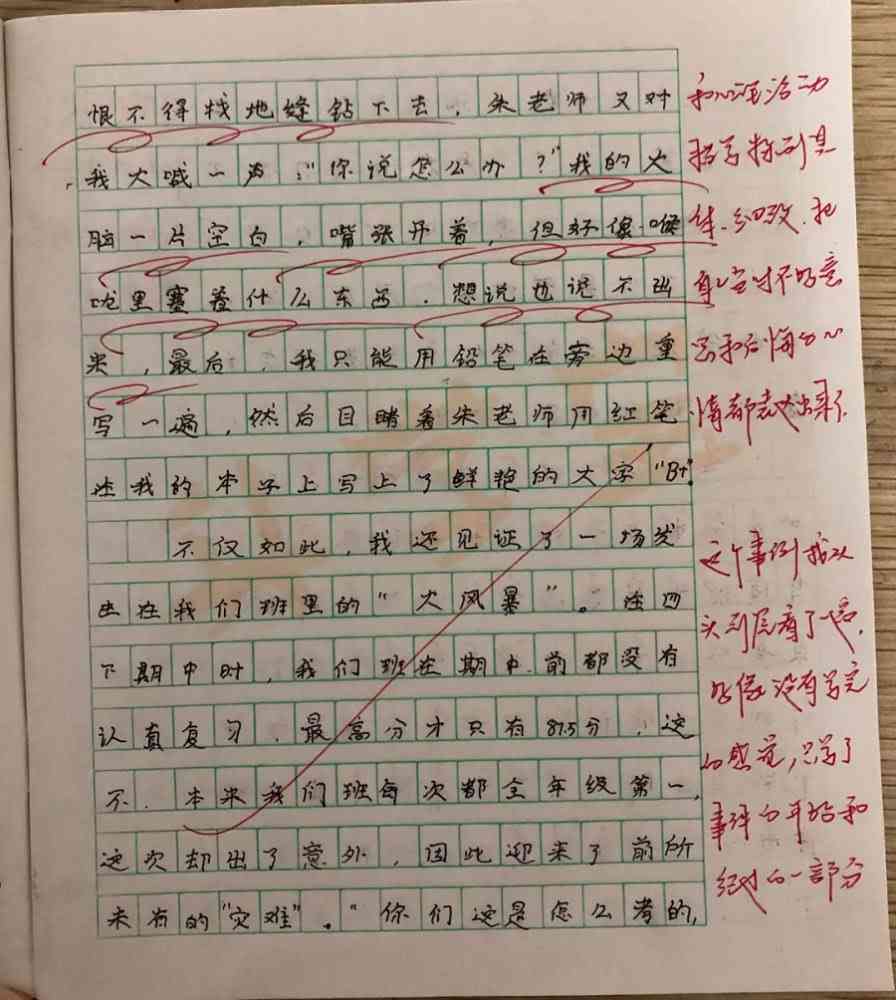 恨不得找地缝钻下去，朱老师又对
我大喊一声：“你说怎么办？”我的大
脑一片空白，嘴张开着，但好像喉
咙里塞着什么东西，想说也说不出
来，最后，我只能用铅笔在旁边重
写一遍，然后目睹着朱老师用红笔
在我的本子上写上了鲜艳的大字“B+”
不仅如此，我还见证了一场发
生在我们班里的“大风暴”。在四
下期中时，我们班在期中前都没有
认真复习，最高分才只有87.5分，这
不，本来我们班每次都全年级第一，
这次却出了意外，因此迎来了前所
未有的“灾难”。“你们这是怎么考的，
和心理活动
描写特别具
体、细致，把
自己当时不好意
思和后悔的心
情都表达出来了
这个事例我从
头到尾看了一遍，
好像没有写完
的感觉，只写了
事件的开始和
经过的一部分